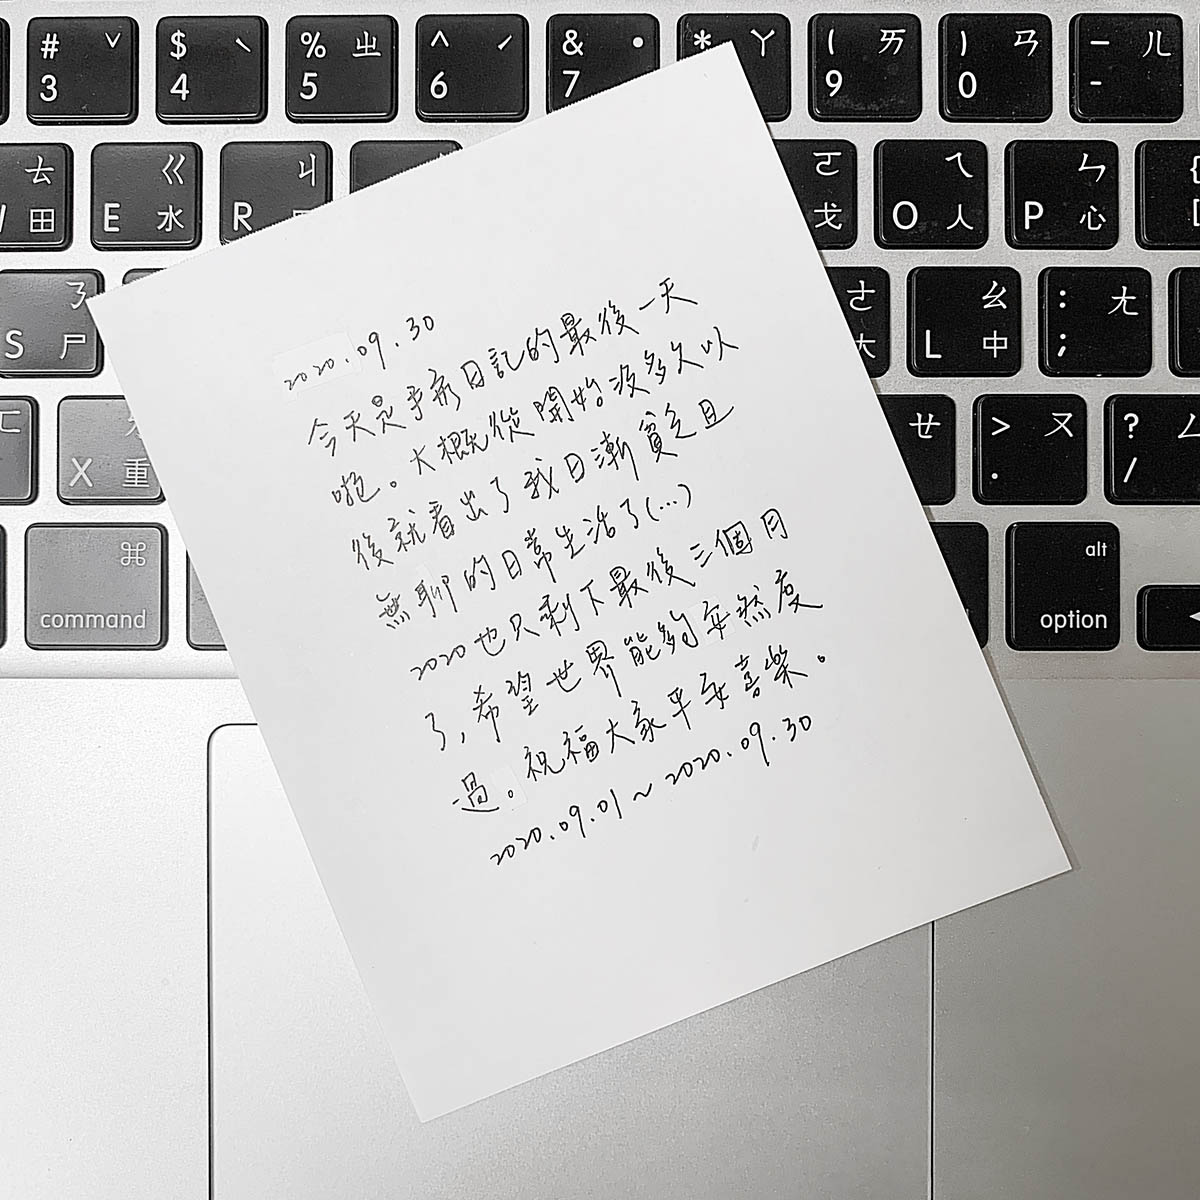 # ˇ 3
$ ˋ 4
% ㄓ 5
^ ˊ 6
& ˙ 7
* ㄚ
( ㄞ 9
) ㄢ 0
— ㄦ -
ㄊ 田
E ㄍ 水
R ㄐ
ㄛ 戈
O ㄟ 人
P ㄣ 心
{ [
S ㄋ 尸
ㄜ 大
L ㄠ 中
: ㄤ ;
ㄈ
X ㄌ 重
ㄝ
> ㄡ .
? ㄥ /
⌘ command
alt option
2020.09.30
今天是手寫日記的最後一天
啦。大概從開始沒多久以
後就看出了我日漸貧乏且
無聊的日常生活了(...)
2020也只剩下最後三個月
了,希望世界能夠安然度
過。祝福大家平安喜樂。
2020.09.01~2020.09.30